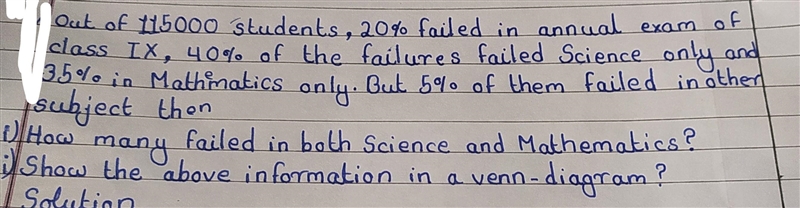 Out of 115000 students, 20% failed in annual exam of
class IX, 40% of the failures failed Science only and
35% in Mathematics only. But 5% of them failed in other
subject then
i) How many failed in both Science and Mathematics?
i) Show the above information in a venn-diagram?
Solution